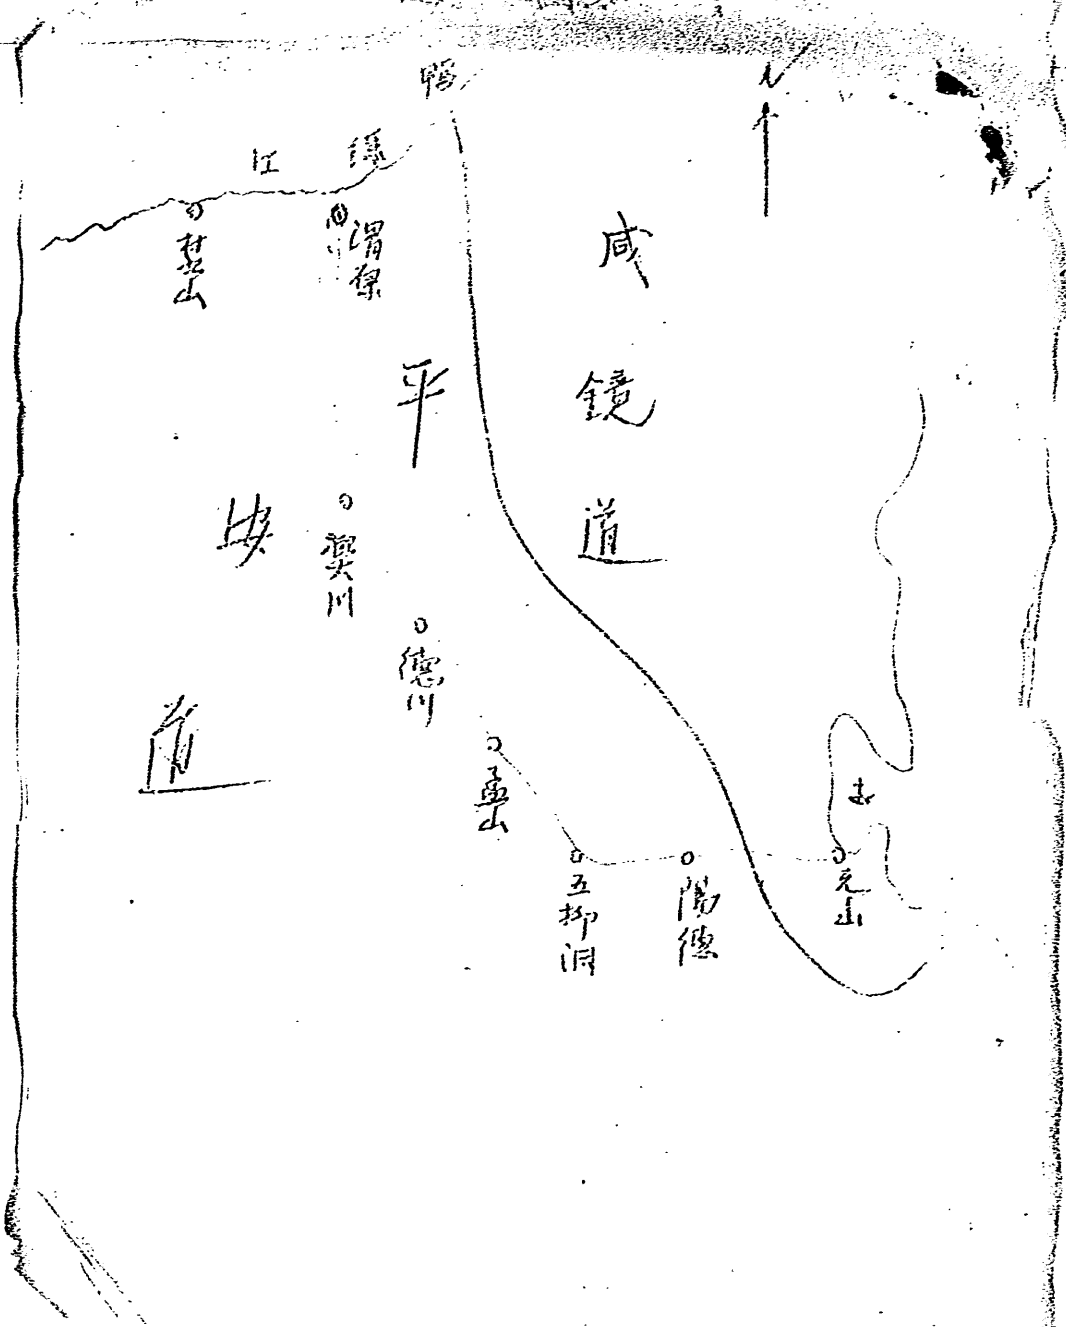 N
鴨
緑
江
楚山
渭原
咸
鏡
道
平
安
道
煕川
德川
孟山
五柳洞
陽德
元山